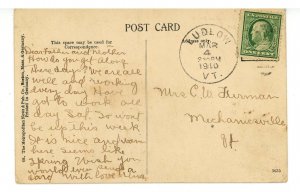 This space may be used for
Correspondence.
POST CARD
Address only.
LUDLOW
MAR
4
1910
VT.
Dear Father and Mother
How do you get along
these days? We are all
well and working
every day Have
got to work all
day Sat. So wont
be up this week
It is nice again
here seems like
spring Wish you
would ever send a
card With love
Mrs C W Furman
Mechanicsville
Vt